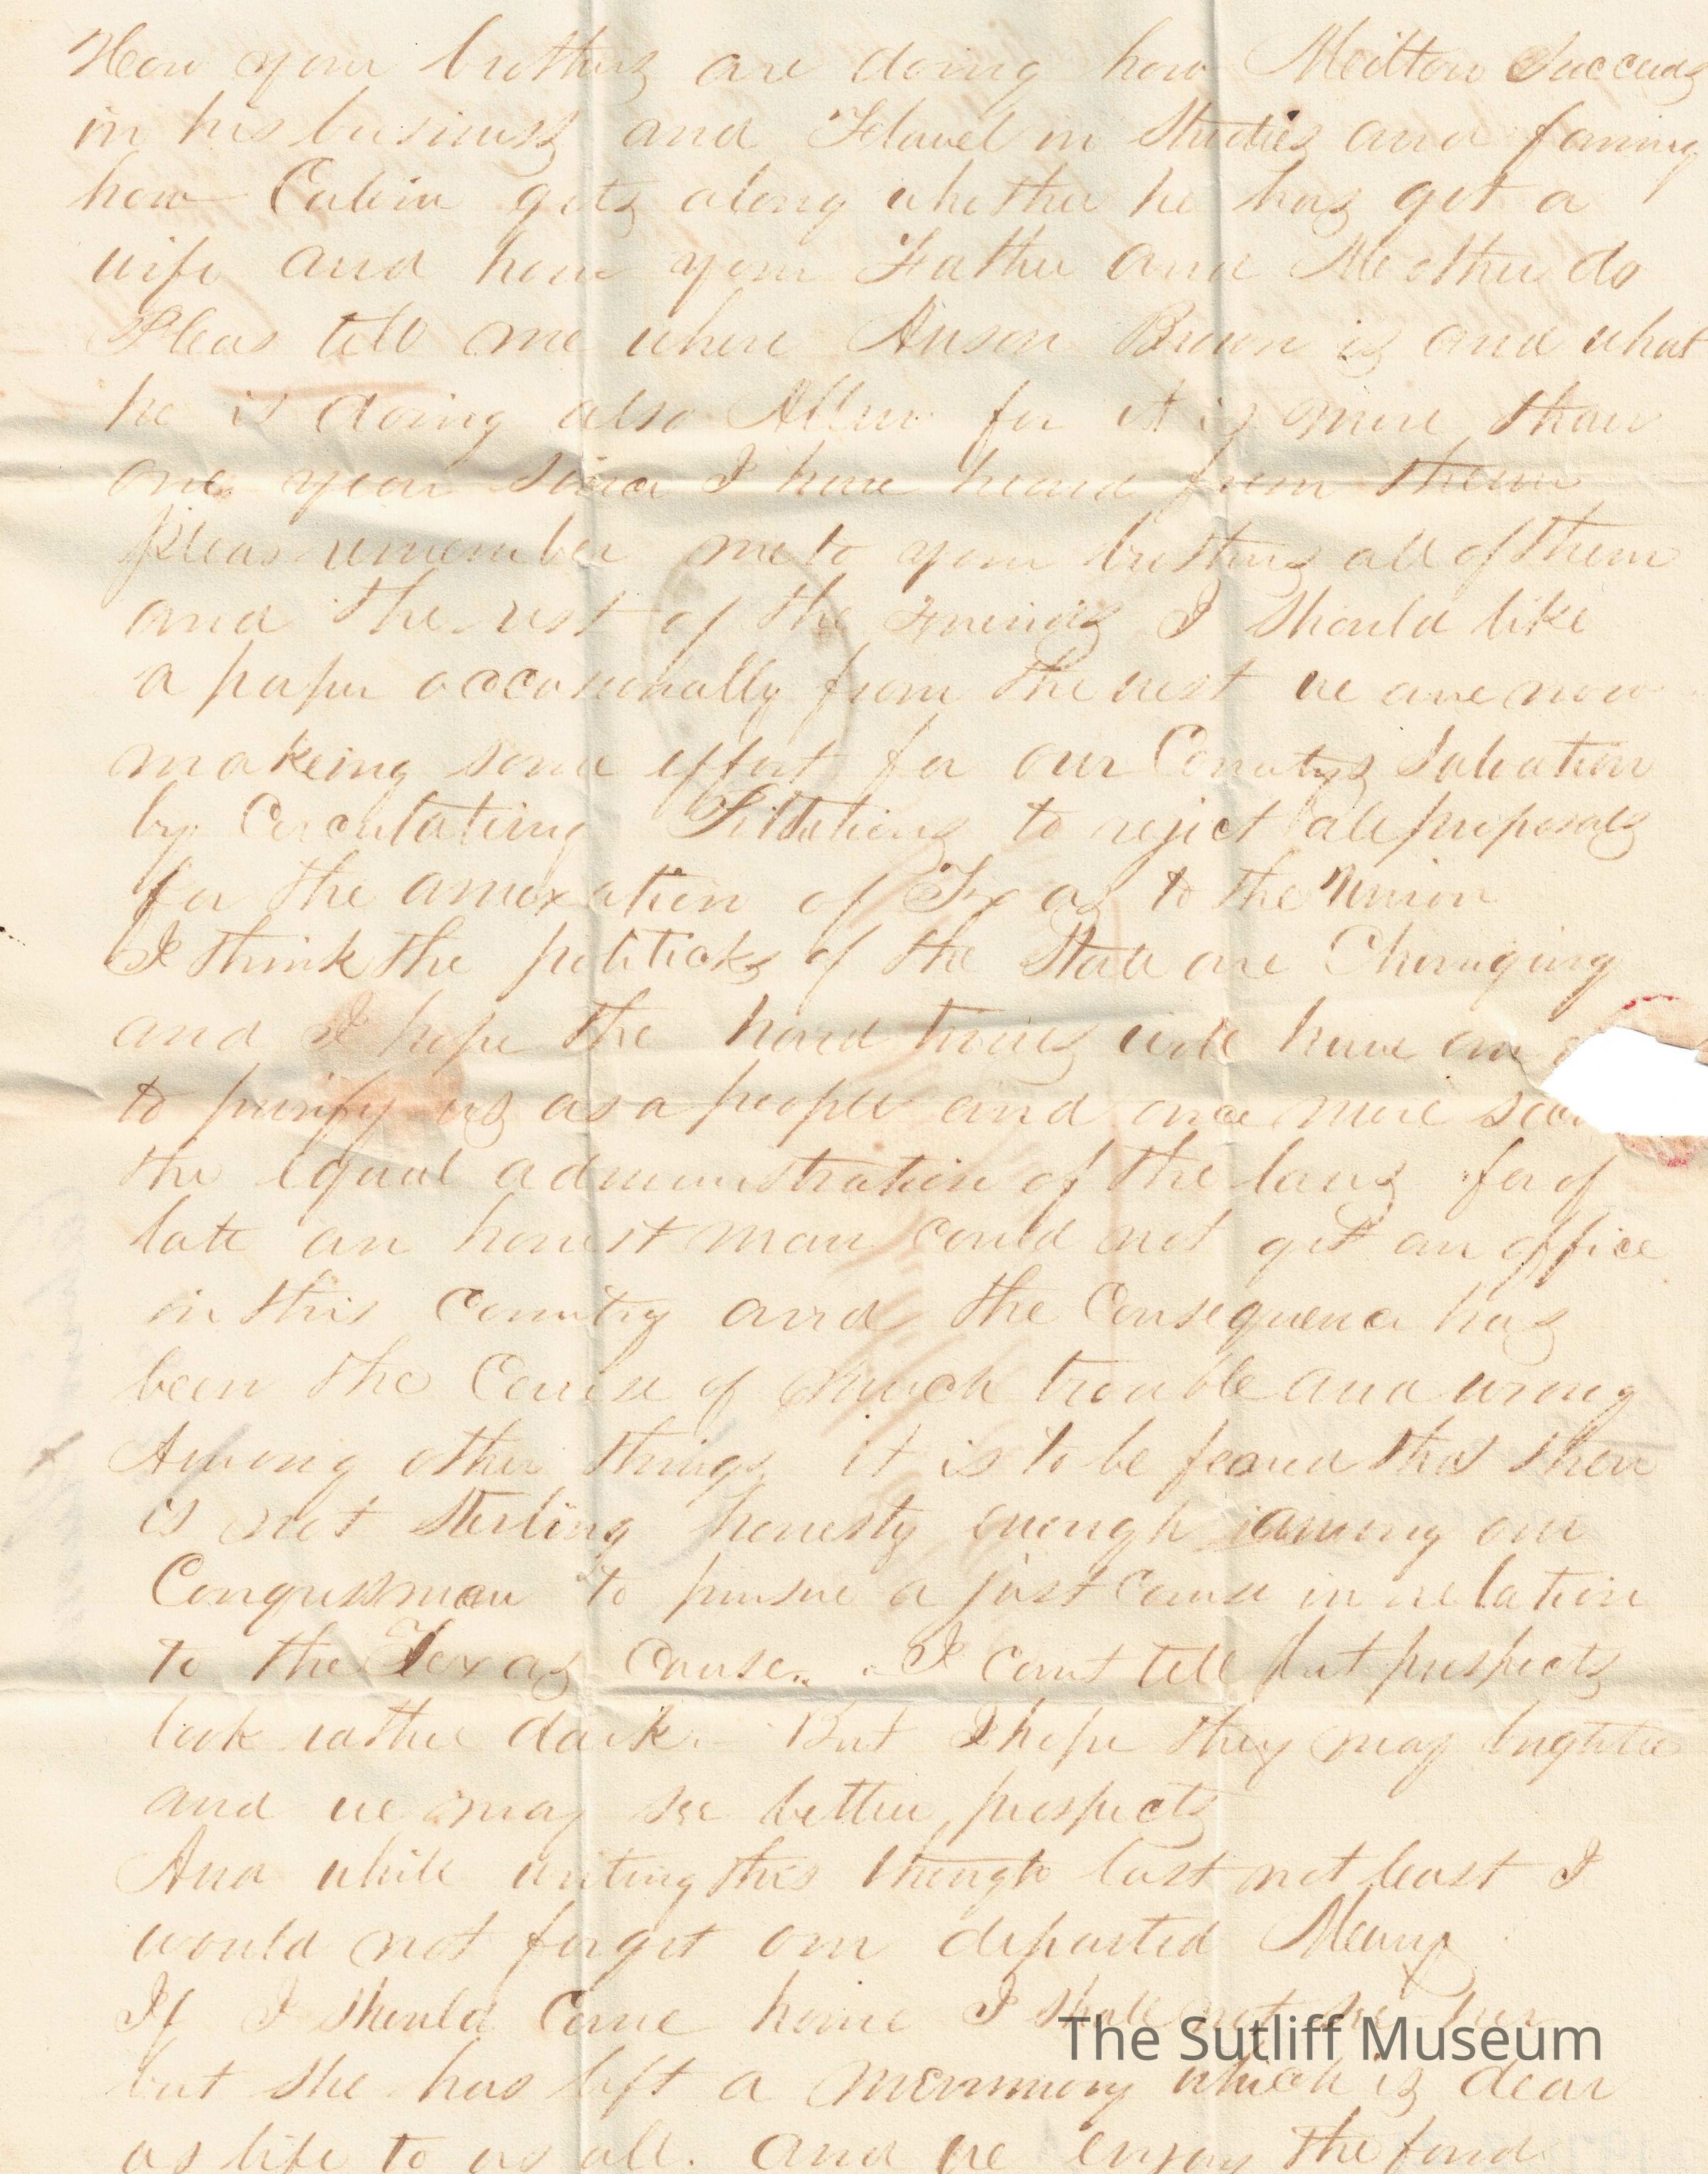 How your brothers are doing how Milton Succeeds
in his business and Flavel in Studies and faming
how Calvin gets along whether he has got a
wife and how your Father and Mother do
Pleas tell me where Anson Brown is and what
he is doing also Allen for it is more than
one year since I have heard from them
Pleas remember me to your brothers all of them
and the rest of the Friends I should like
a paper occasionally from the west we are now
makeing some effort for our Countys Salvation
by Circulateing Pittitions to reject all proposals
for the annexation of Texas to the Union
I think the politicks of the State are Changing
and I hope the hard times will have an
to purify us as a people and once more
the equal administration of the laws for of
late an honest man could not get an office
in this Country and the Consequence has
been the Cause of much trouble and wrong
Among other things it is to be feared that there
is not Sterling honesty enough among our
Congressman to pursue a just course in relation
to the Texas Cause.. I cant tell but prospects
look rather dark. But I hope they may brighten
and we may see better prospects
And while writing this though last not least I
would not forget our departed Mary
If I should Come home I shall not see her
but she has left a memmory which is dear
as life to us all. and we enjoy the fond
The Sutliff Museum